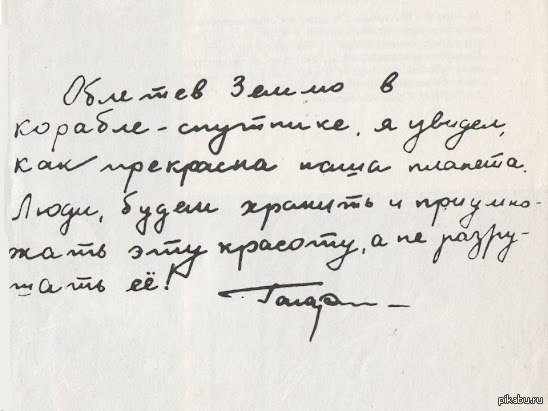 Облетев Землю в
корабле-спутнике, я увидел,
как прекрасна наша планета.
Люди, будем хранить и приумно-
жать эту красоту, а не разру-
шать её!
Гагарин
pikabu.ru